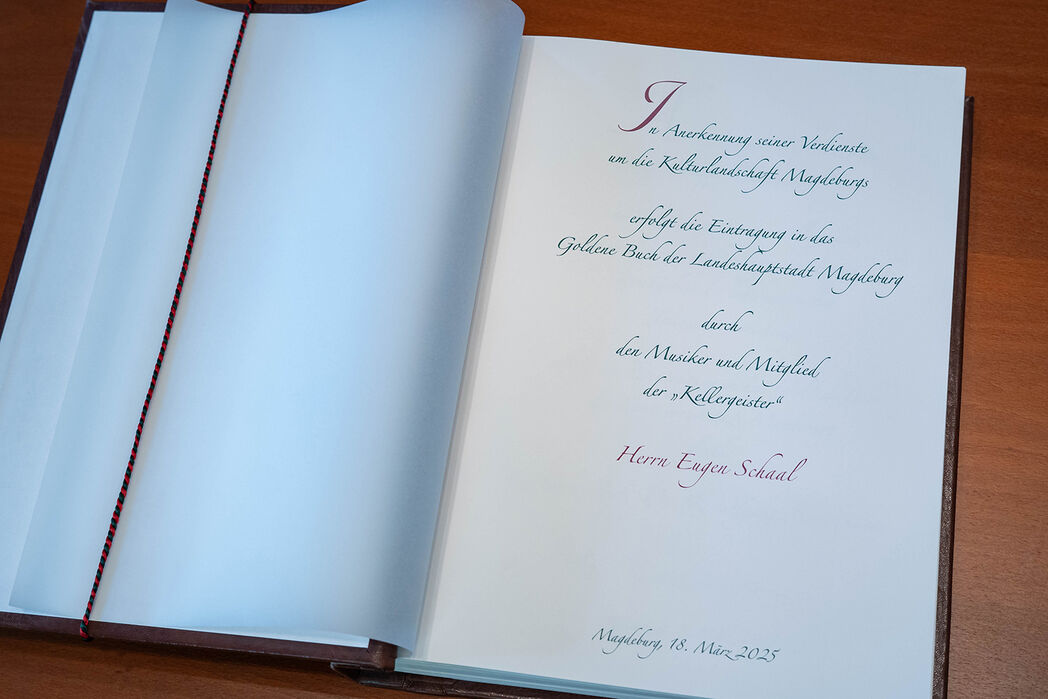 In Anerkennung seiner Verdienste
um die Kulturlandschaft Magdeburgs
erfolgt die Eintragung in das
Goldene Buch der Landeshauptstadt Magdeburg
durch
den Musiker und Mitglied
der „Kellergeister“
Herrn Eugen Schaal
Magdeburg, 18. März 2025